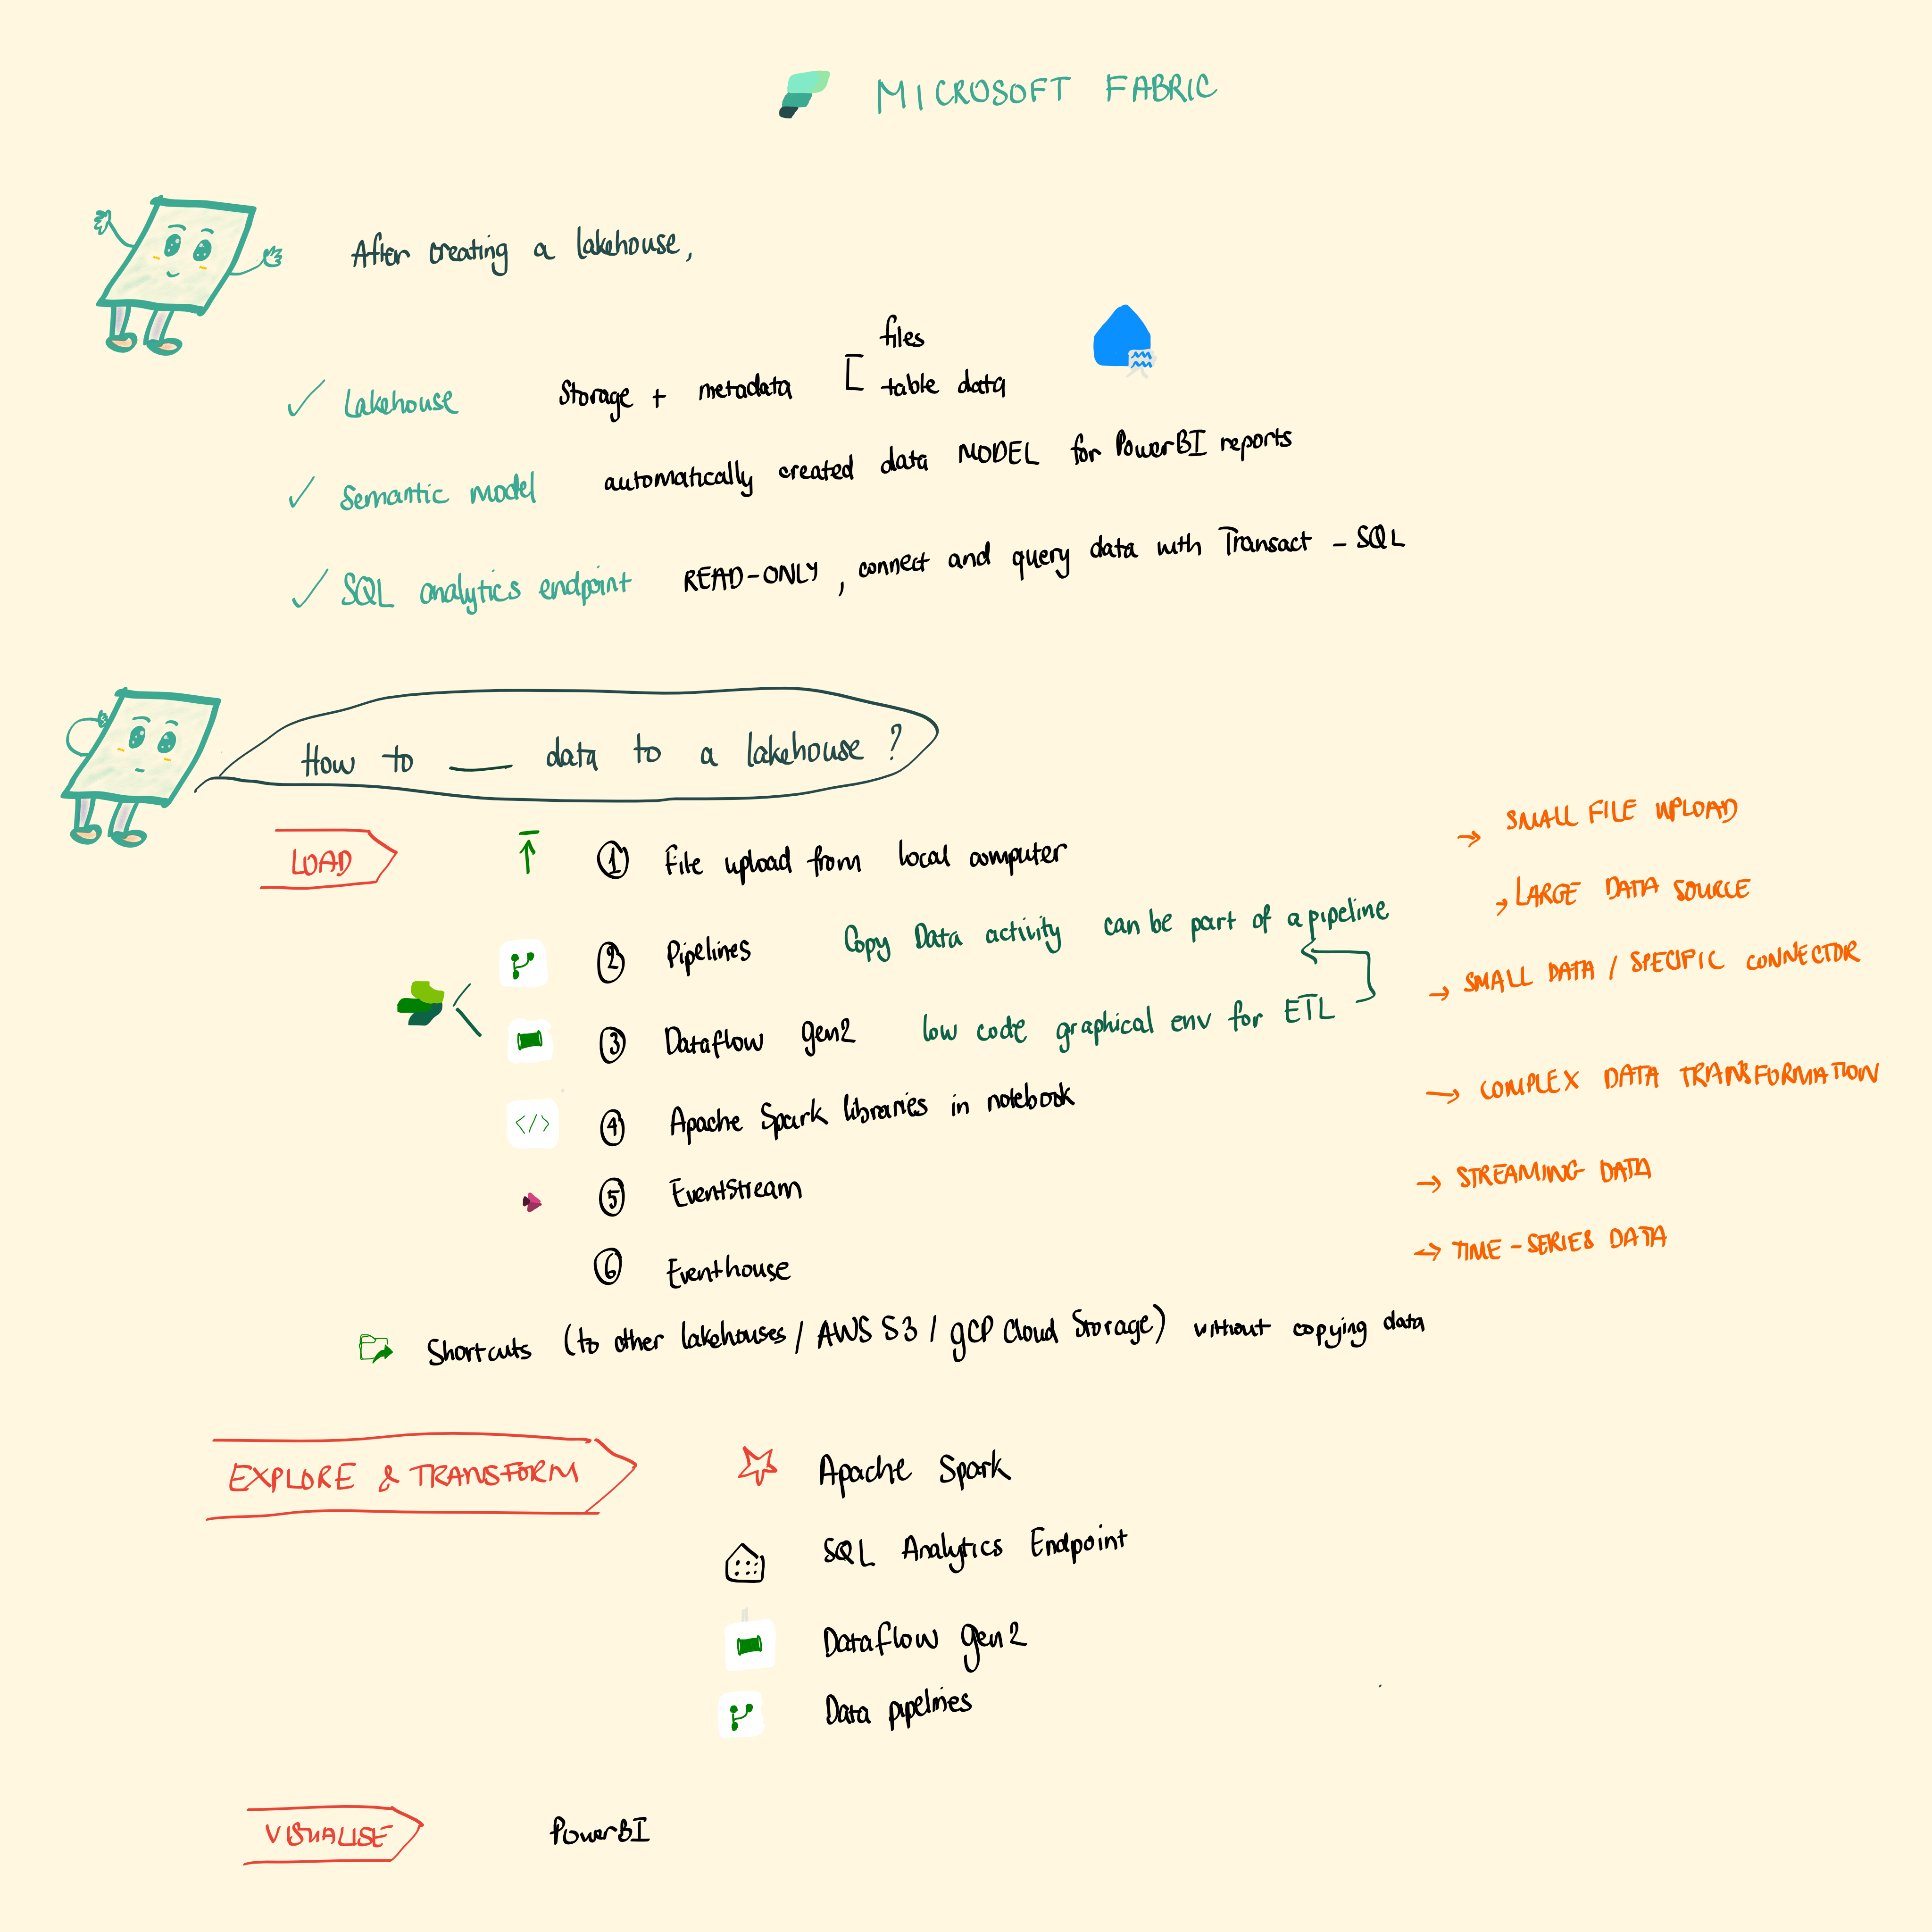 MICROSOFT FABRIC
After creating a lakehouse,
✓ Lakehouse Storage + metadata [ files
table data
✓ Semantic model automatically created data MODEL for PowerBI reports
✓ SQL analytics endpoint READ-ONLY, connect and query data with Transact-SQL
How to ___ data to a lakehouse?
LOAD
① File upload from local computer → SMALL FILE UPLOAD
② Pipelines Copy Data activity can be part of a pipeline → LARGE DATA SOURCE
③ Dataflow gen2 low code graphical env for ETL → SMALL DATA / SPECIFIC CONNECTOR
</> ④ Apache Spark libraries in notebook → COMPLEX DATA TRANSFORMATION
⑤ EventStream → STREAMING DATA
⑥ Eventhouse → TIME-SERIES DATA
Shortcuts (to other lakehouses / AWS S3 / GCP Cloud Storage) without copying data
EXPLORE & TRANSFORM
Apache Spark
SQL Analytics Endpoint
Dataflow gen2
Data pipelines
VISUALISE PowerBI